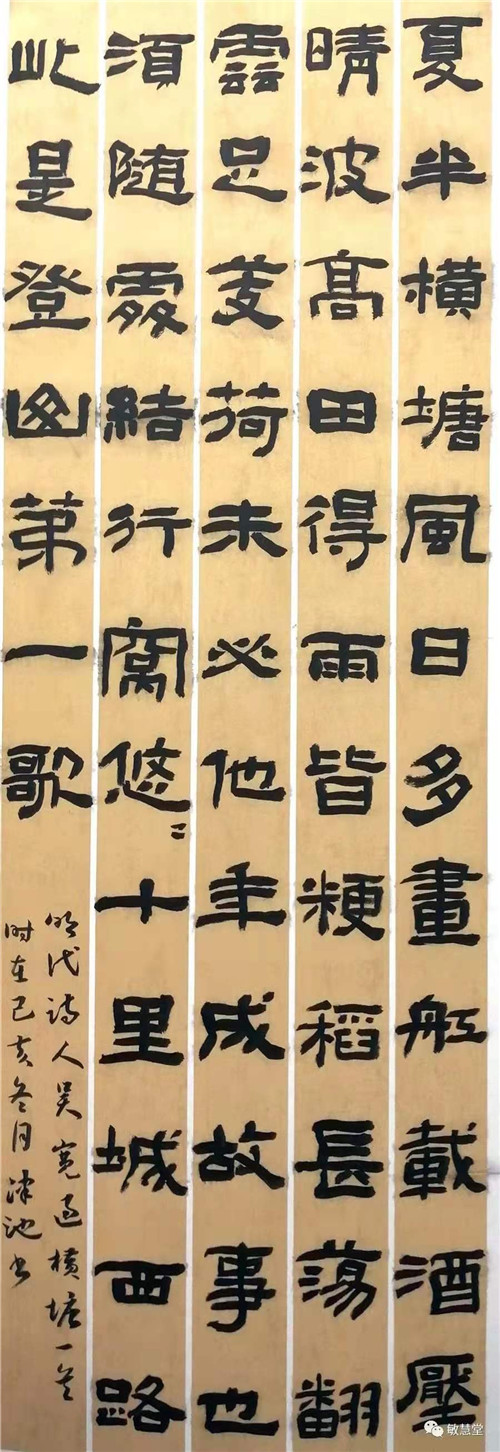 夏半橫塘風日多畫舡載酒壓
晴波高田得雨皆粳稻長蕩翻
雲足芰荷未必他年成故事也
須随處結行窩悠〻十里城西路
此是登山第一歌
明代詩人吴寬過橫塘一首
时在己亥冬月津池书
敏慧堂